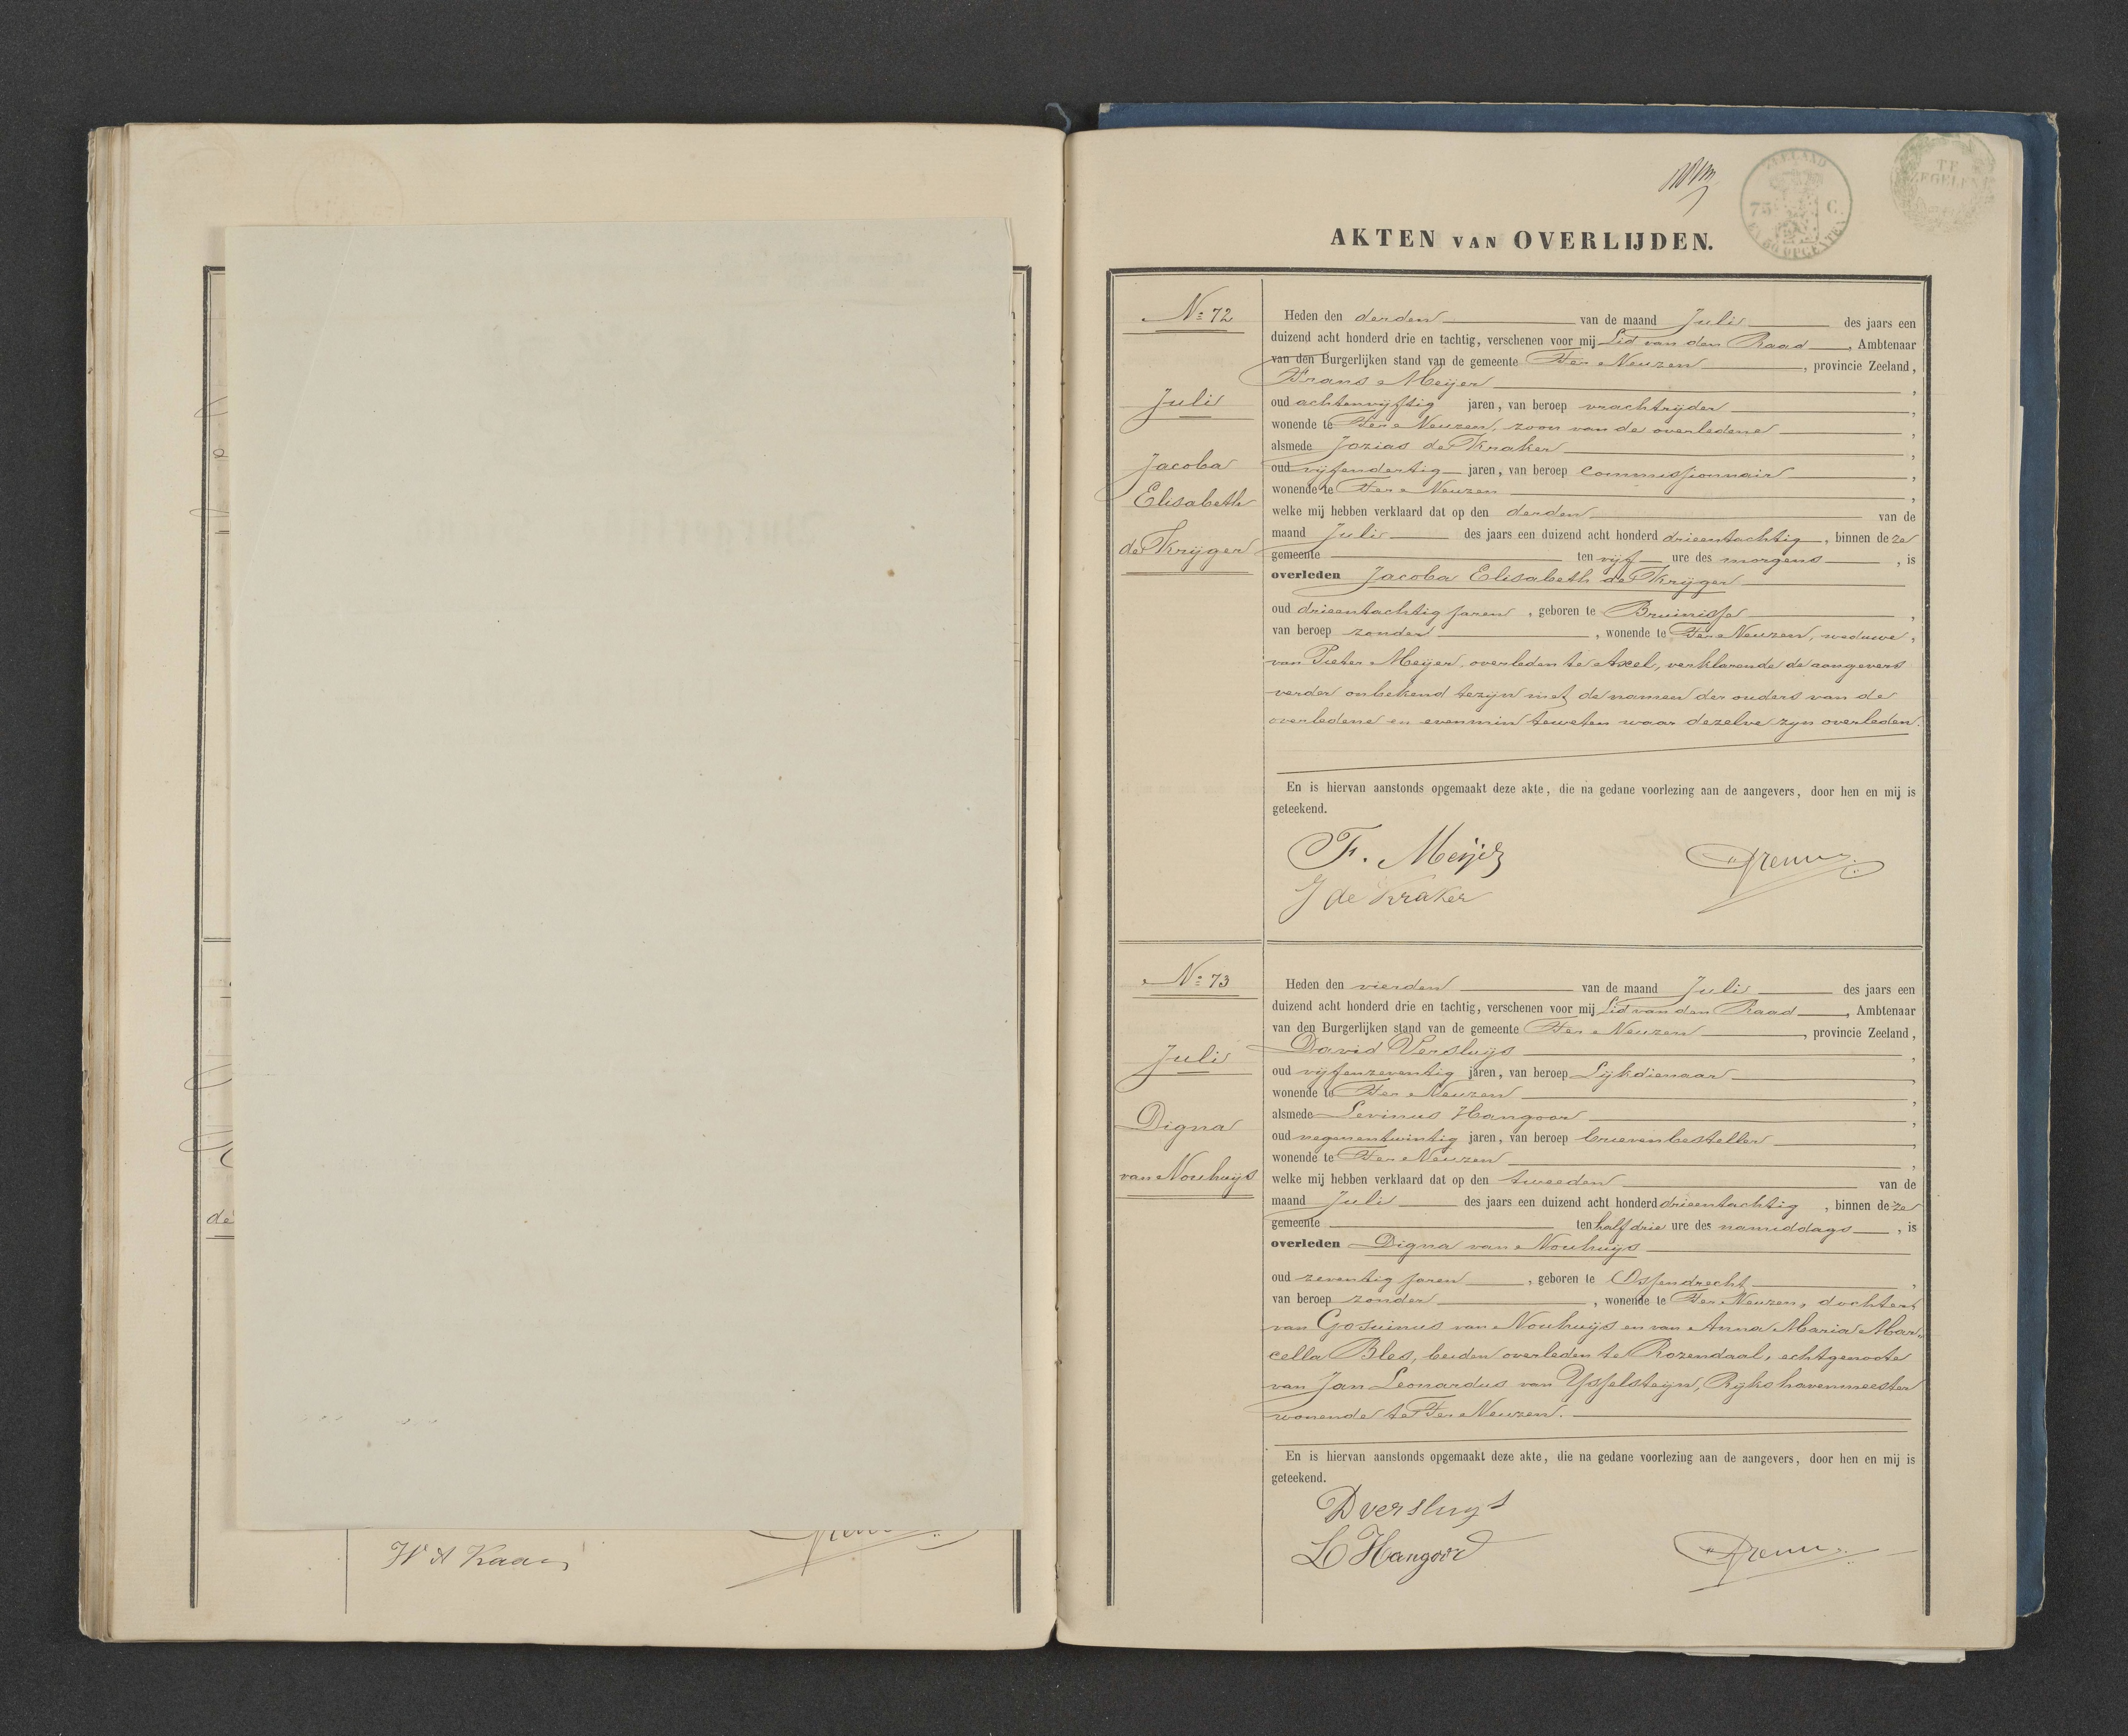 de
W A Kaan
ZEELAND
75 C.
EN 50 OPCENTEN
TE
ZEGELEN
AKTEN VAN OVERLIJDEN.
No 72
Juli
Jacoba
Elisabeth
de Krijger
Heden den derden van de maand Juli des jaars een
duizend acht honderd drie en tachtig, verschenen voor mij Lid van den Raad, Ambtenaar
van den Burgerlijken stand van de gemeente Ter Neuzen, provincie Zeeland,
Frans Meijer,
oud achtenvijftig jaren, van beroep vrachtrijder,
wonende te Ter Neuzen, zoon van de overledene,
alsmede Jozias de Kraker,
oud vijfendertig jaren, van beroep commissionnair,
wonende te Ter Neuzen,
welke mij hebben verklaard dat op den derden van de
maand Juli des jaars een duizend acht honderd drieentachtig, binnen deze
gemeente ten vijf ure des morgens, is
overleden Jacoba Elisabeth de Krijger
oud drieentachtig jaren, geboren te Bruinisse,
van beroep zonder, wonende te Ter Neuzen, weduwe,
van Pieter Meijer, overleden te Axel, verklarende de aangevers
verder onbekend te zijn met de namen der ouders van de
overledene en evenmin te weten waar dezelve zijn overleden.
En is hiervan aanstonds opgemaakt deze akte, die na gedane voorlezing aan de aangevers, door hen en mij is
geteekend.
F. Meijer
J de Kraker
No 73
Juli
Digna
van Nouhuijs
Heden den vierden van de maand Juli des jaars een
duizend acht honderd drie en tachtig, verschenen voor mij Lid van den Raad, Ambtenaar
van den Burgerlijken stand van de gemeente Ter Neuzen, provincie Zeeland,
David Versluijs,
oud vijfenzeventig jaren, van beroep Lijkdienaar,
wonende te Ter Neuzen,
alsmede Levinus Hangoor,
oud negenentwintig jaren, van beroep brievenbesteller,
wonende te Ter Neuzen,
welke mij hebben verklaard dat op den tweeden van de
maand Juli des jaars een duizend acht honderd drieentachtig, binnen deze
gemeente ten half drie ure des namiddags, is
overleden Digna van Nouhuijs
oud zeventig jaren, geboren te Ossendrecht,
van beroep zonder, wonende te Ter Neuzen, dochter
van Gosuinus van Nouhuijs en van Anna Maria Mar„
cella Bles, beiden overleden te Rozendaal, echtgenoote
van Jan Leonardus van Ysselsteijn, Rijkshavenmeester
wonende te Ter Neuzen.
En is hiervan aanstonds opgemaakt deze akte, die na gedane voorlezing aan de aangevers, door hen en mij is
geteekend.
D versluys
L Hangoor